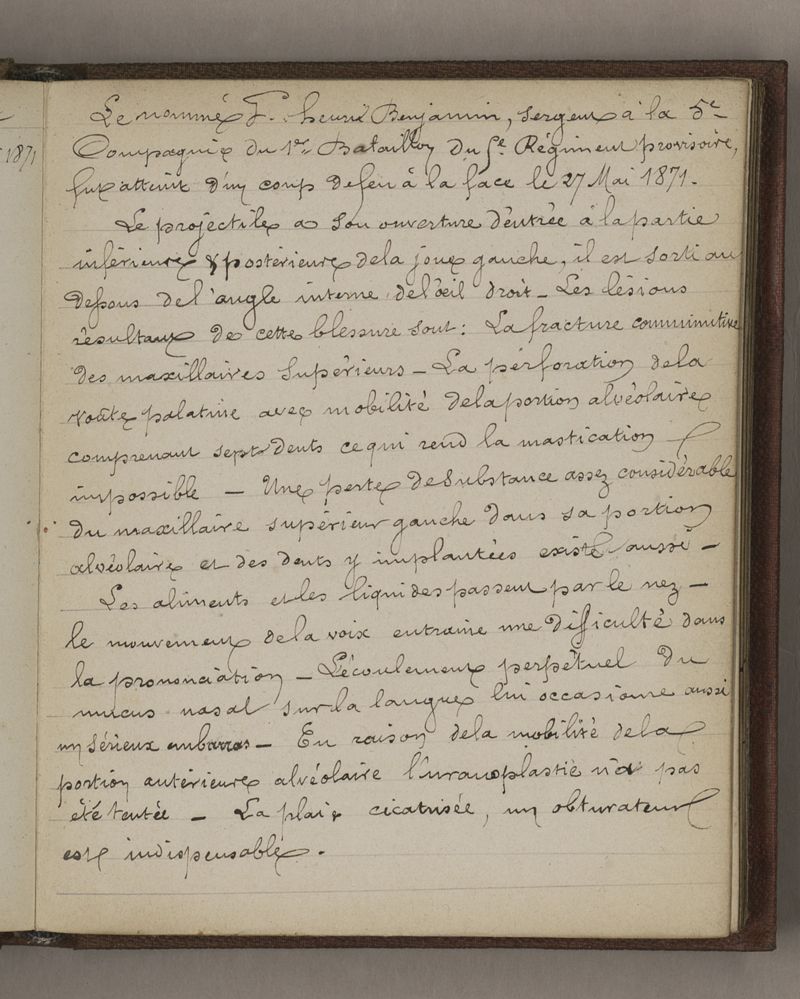 1871
Le nommé F. henri Benjamin, sergent à la 5e
Compagnie du 1er Bataillon du 5e Régiment provisoire,
fut atteint d'un coup de feu à la face le 27 Mai 1871.
Le projectile a son ouverture d'entrée à la partie
inférieure & postérieure de la joue gauche, il est sorti au
dessous de l'angle interne de l'œil droit - Les lésions
résultant de cette blessure sont : La fracture comminutive
des maxillaires supérieurs - La pérforation de la
voûte palatine avec mobilité de la portion alvéolaire
comprenant sept dents ce qui rend la mastication
impossible - Une perte de substance assez considérable
du maxillaire supérieur gauche dans sa portion
alvéolaire et des dents y implantées existe aussi -
Les aliments et les liquides passent par le nez -
le mouvement de la voix entraine une difficulté dans
la prononciation - L'écoulement perpétuel du
mucus nasal sur la langue lui occasionne aussi
un sérieux embarras - En raison de la mobilité de la
portion antérieure alvéolaire l'uranoplastie n'a pas
été tentée - La plaie cicatrisée, un obturateur
est indispensable.